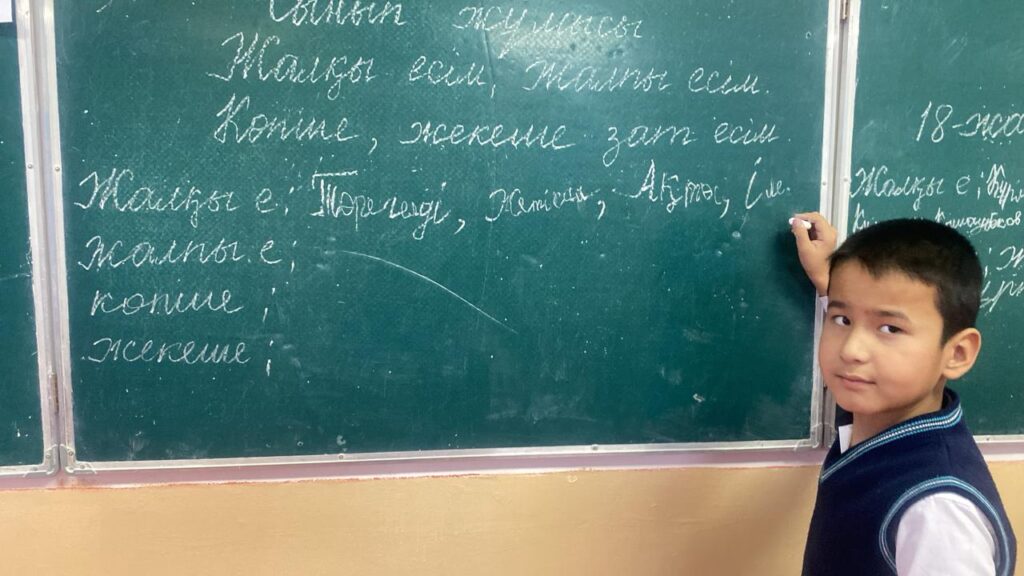 Сынып жұмысы
Жалқы есім, Жалпы есім.
Көпше, жекеше зат есім
Жалқы е; Төрегелді, Жетісай, Ақты, Іле.
жалпы е;
көпше;
жекеше;
18-жа
Жалқы е;